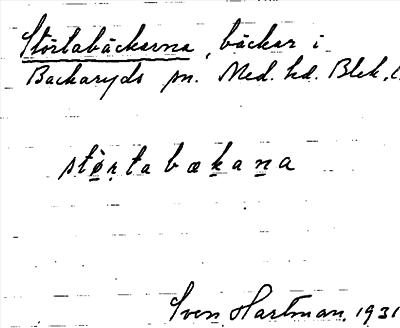 Störtabäckarna, bäckar i
Backaryds sn. Med. hd. Blek. l.
störtabækana
Sven Hartman. 1931